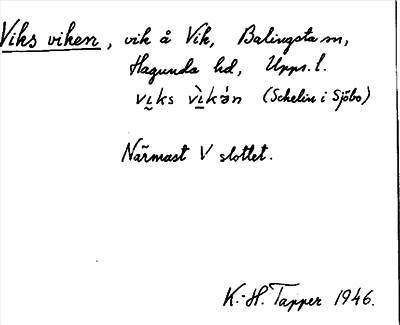 Viks viken, vik å Vik, Balingsta sn,
Hagunda hd, Upps. l.
vı̰ks vı̰̀kə́n (Schelin i Sjöbo)
Närmast V slottet.
K.-H. Tapper 1946.